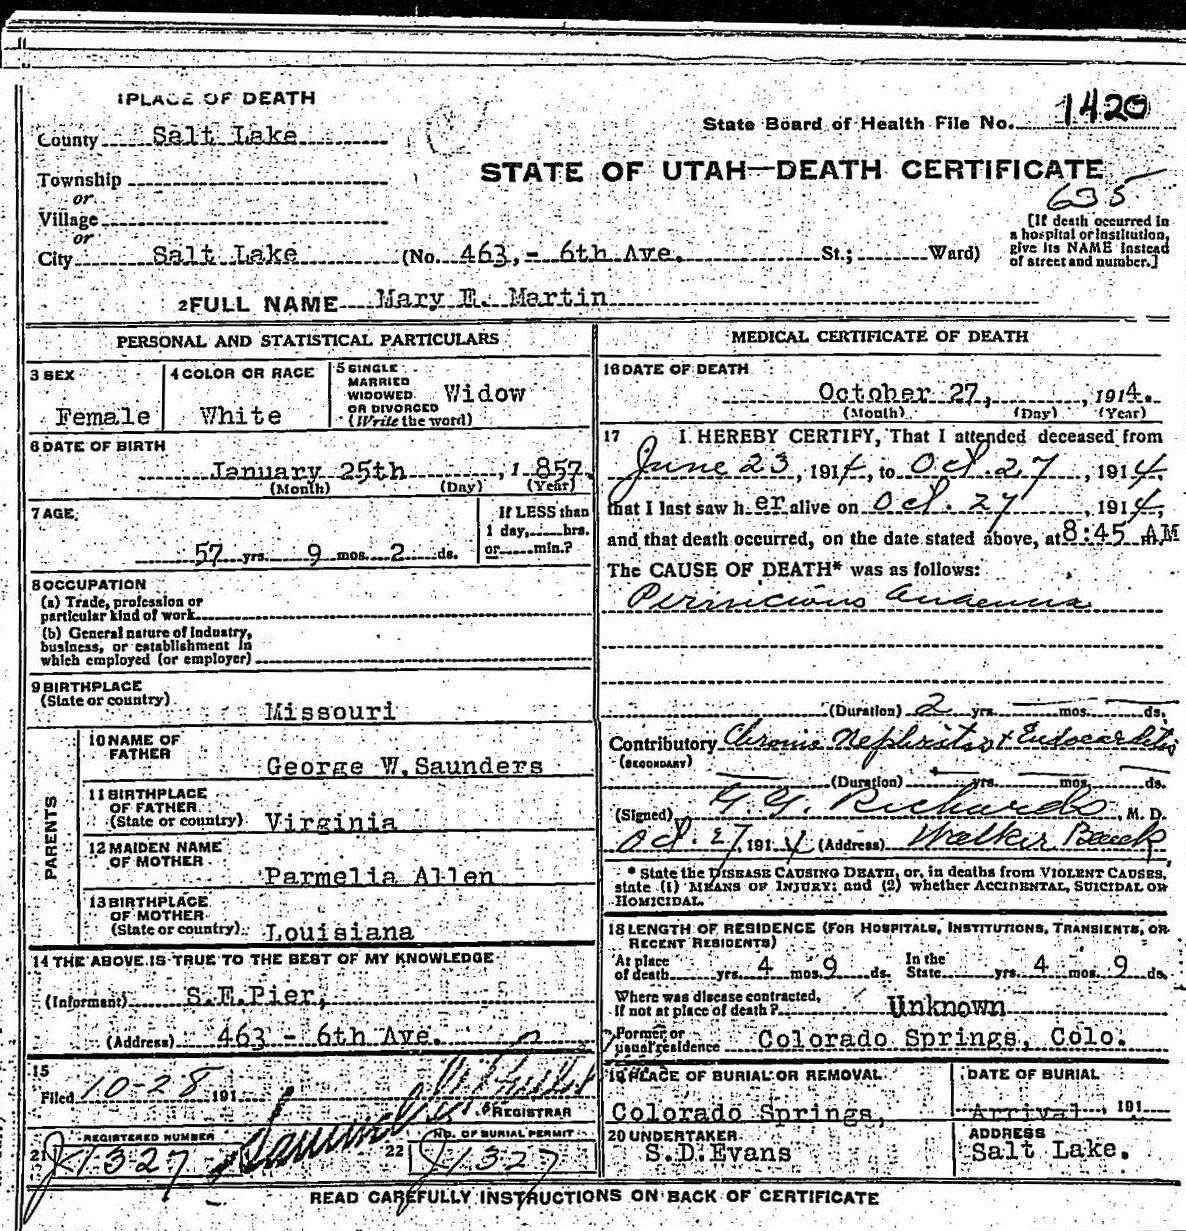 1 PLACE OF DEATH
County Salt Lake
Township
or
Village
or
City Salt Lake (No. 463,- 6th Ave. St.; Ward)
State Board of Health File No. 1420
STATE OF UTAH—DEATH CERTIFICATE
635
[If death occurred in
a hospital or institution,
give its NAME instead
of street and number.]
2 FULL NAME Mary E. Martin
PERSONAL AND STATISTICAL PARTICULARS
3 SEX
Female
4 COLOR OR RACE
White
5 SINGLE
MARRIED
WIDOWED
OR DIVORCED
(Write the word)
Widow
6 DATE OF BIRTH
January 25th, 1857.
(Month) (Day) (Year)
7 AGE
57 yrs. 9 mos. 2 ds.
If LESS than
1 day, hrs.
or min.?
8 OCCUPATION
(a) Trade, profession or
particular kind of work
(b) General nature of Industry,
business, or establishment in
which employed (or employer)
9 BIRTHPLACE
(State or country)
Missouri
PARENTS
10 NAME OF
FATHER
George W. Saunders
11 BIRTHPLACE
OF FATHER
(State or country) Virginia
12 MAIDEN NAME
OF MOTHER
Parmelia Allen
13 BIRTHPLACE
OF MOTHER
(State or country) Louisiana
14 THE ABOVE IS TRUE TO THE BEST OF MY KNOWLEDGE
(Informant) S.E.Pier,
(Address) 463 - 6th Ave.
15
Filed 10-28 191
REGISTRAR
21 REGISTERED NUMBER
J1327
22 NO. OF BURIAL PERMIT
J1327
MEDICAL CERTIFICATE OF DEATH
16 DATE OF DEATH
October 27, , 1914.
(Month) (Day) (Year)
17 I HEREBY CERTIFY, That I attended deceased from
June 23, 1914, to Oct. 27, 1914,
that I last saw her alive on Oct. 27, 1914,
and that death occurred, on the date stated above, at 8:45 AM m.
The CAUSE OF DEATH* was as follows:
Pernicious Anaemia
(Duration) 2 yrs. mos. ds.
Contributory Chronic Nephritis + Endocarditis
(SECONDARY)
(Duration) yrs. mos. ds.
(Signed) G. G. Richards, M. D.
Oct. 27, 1914 (Address) Walker Bank
* State the DISEASE CAUSING DEATH, or, in deaths from VIOLENT CAUSES,
state (1) MEANS OF INJURY; and (2) whether ACCIDENTAL, SUICIDAL OR
HOMICIDAL.
18 LENGTH OF RESIDENCE (FOR HOSPITALS, INSTITUTIONS, TRANSIENTS, OR
RECENT RESIDENTS)
At place
of death yrs. 4 mos. 9 ds. In the
State yrs. 4 mos. 9 ds.
Where was disease contracted,
If not at place of death? Unknown
Former or
usual residence Colorado Springs, Colo.
19 PLACE OF BURIAL OR REMOVAL
Colorado Springs,
DATE OF BURIAL
Arrival , 191
20 UNDERTAKER
S.D.Evans
ADDRESS
Salt Lake.
READ CAREFULLY INSTRUCTIONS ON BACK OF CERTIFICATE